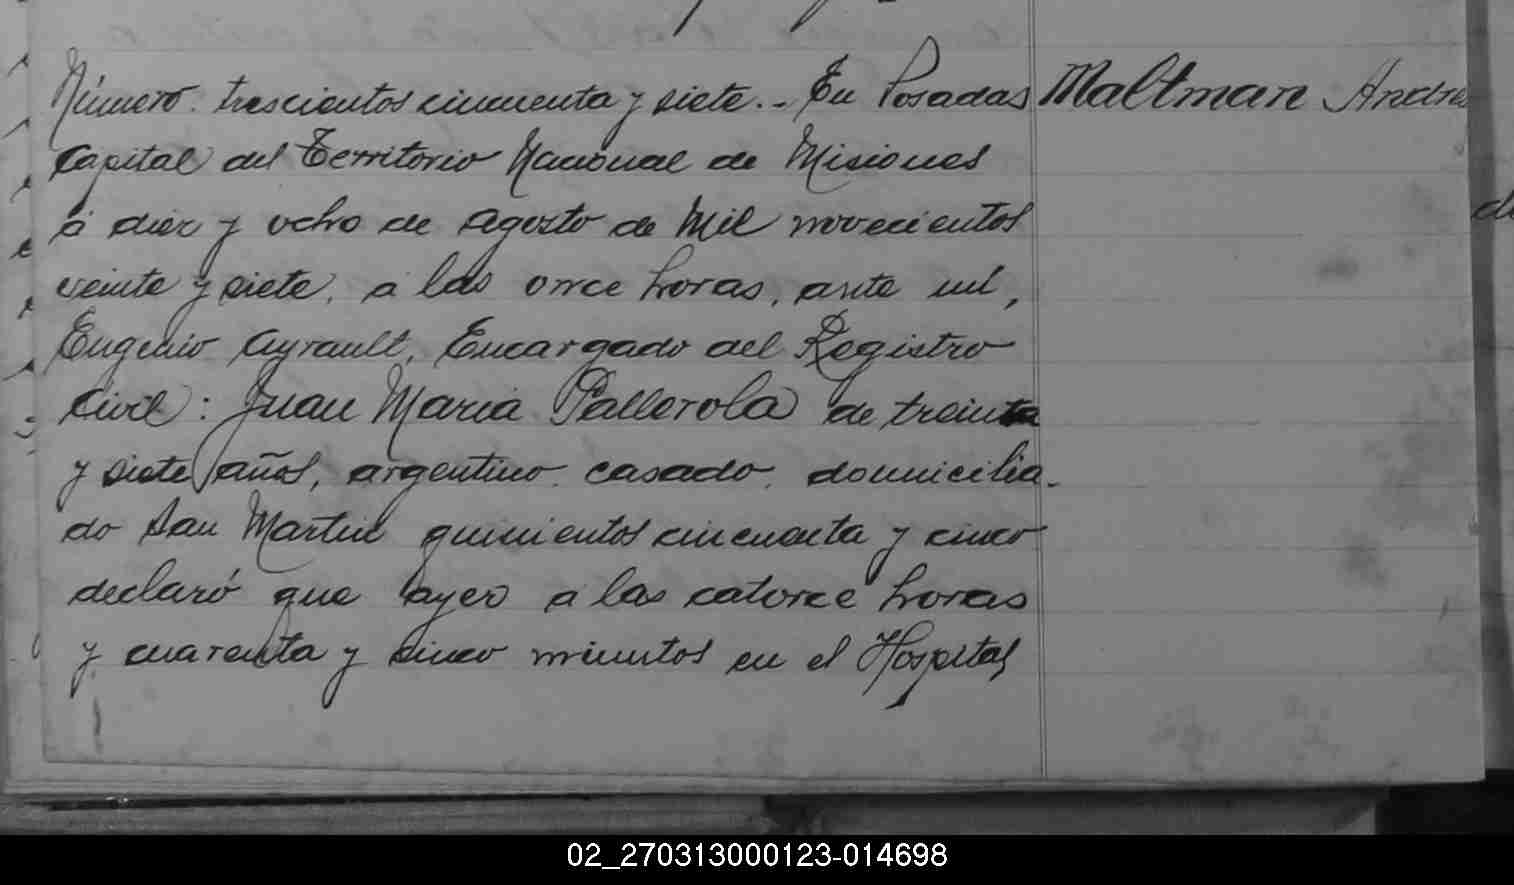 Número trescientos cincuenta y siete.- En Posadas
Maltman Andres
Capital del Territorio Nacional de Misiones
á diez y ocho de Agosto de Mil novecientos
veinte y siete, a las once horas, ante mi,
Eugenio Ayrault, Encargado del Registro
Civil: Juan Maria Pallerola de treinta
y siete años, argentino, casado, domicilia-
do San Martin quinientos cincuenta y cinco
declaró que ayer a las catorce horas
y cuarenta y cinco minutos en el Hospital
02_270313000123-014698